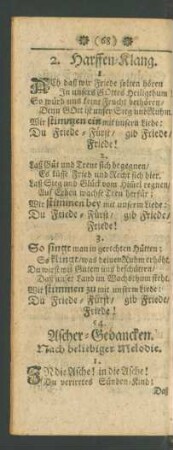 (68)
2. Harffen-Klang.
1.
ACh daß wir Friede solten hören
In unsers GOttes Heiligthum
So würd uns keine Furcht bethören,
Denn GOtt ist unser Sieg und Ruhm.
Wir stimmen ein mit unserm Liede:
Du Friede-Fürst, gib Friede,
Friede!
2.
Laß Güt und Treue sich begegnen,
Es küsse Fried und Recht sich hier.
Laß Sieg und Glück vom Himel regnen,
Auf Erden wachse Treu herfür;
Wir stimmen bey mit unserm Liede:
Du Friede-Fürst, gib Friede,
Friede!
3.
So singt man in gerechten Hütten:
So klingt, was deinen Ruhm erhöht.
Du wirst mit Gutem uns beschütten,
Daß unser Land im Wachsthum steht.
Wir stimmen zu mit unserm Liede:
Du Friede-Fürst, gib Friede,
Friede!
54.
Ascher-Gedancken.
Nach beliebiger Melodie.
1.
IN die Asche! in die Asche!
Du verirrtes Sünden-Kind!
Das